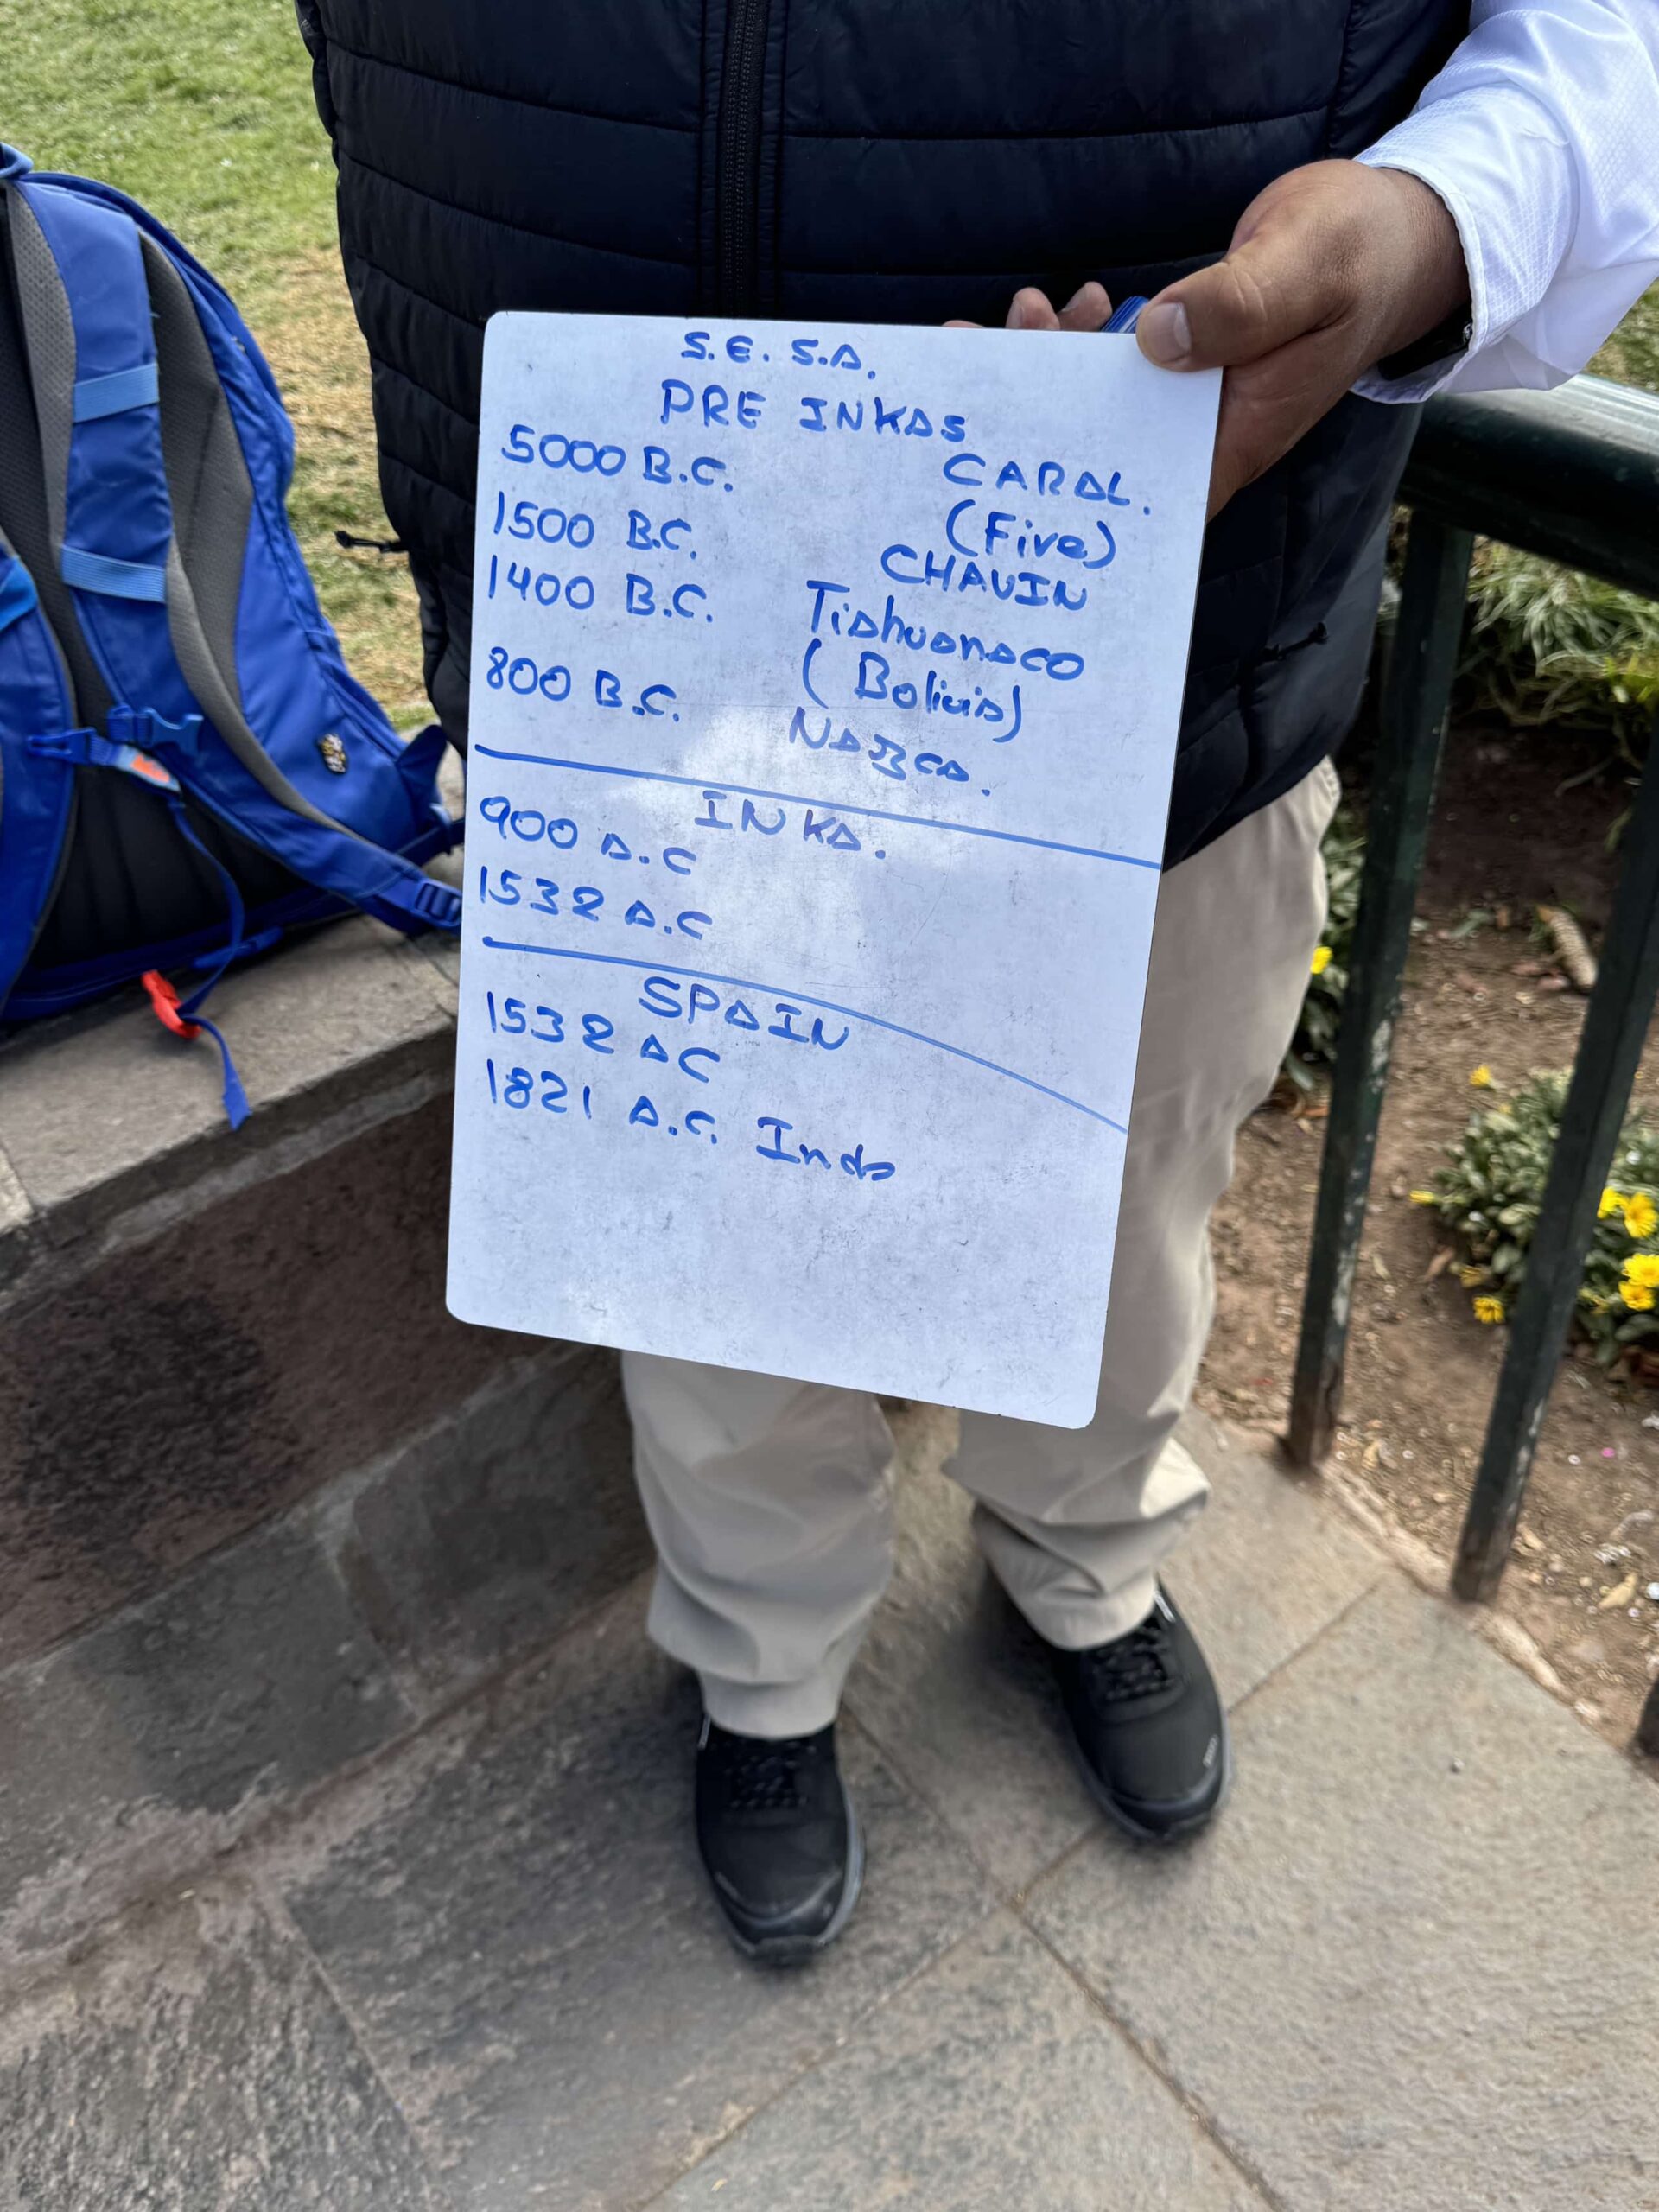 S.E. S.A.
PRE INKAS
5000 B.C. CARAL.
(Five)
1500 B.C. CHAVIN
1400 B.C. Tiahuanaco
(Bolivia)
800 B.C. NAZCA.
INKA.
900 A.C
1532 A.C
SPAIN
1532 AC
1821 A.C. Inda